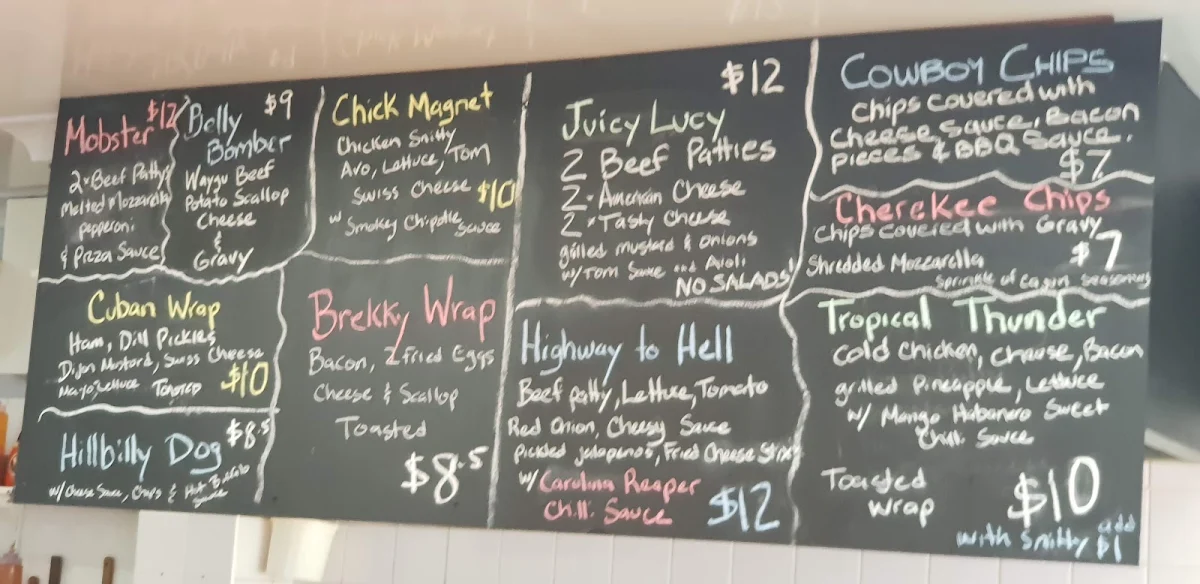 Mobster $12
2 x Beef Patty's
Melted Mozzarella
pepperoni
& Pizza Sauce
Belly $9
Bomber
Waygu Beef
Potato Scallop
Cheese
&
Gravy
Chick Magnet
Chicken Snitty
Avo, Lettuce, Tom
Swiss Cheese $10
w Smokey Chipotle Sauce
$12
Juicy Lucy
2 Beef Patties
2 x American Cheese
2 x Tasty Cheese
grilled mustard & onions
w/ Tom Sauce and Aioli
NO SALADS!
COWBOY CHIPS
Chips covered with
Cheese Sauce, Bacon
pieces & BBQ Sauce.
$7
Cherekee Chips
Chips covered with Gravy
Shredded Mozzarella $7
Sprinkle of Cajun Seasoning
Cuban Wrap
Ham, Dill Pickles
Dijon Mustard, Swiss Cheese
Mayo, Lettuce Toasted $10
Hillbilly Dog $8.5
w/ Cheese Sauce, Chips & Hot Buffalo
Sauce
Brekky Wrap
Bacon, 2 Fried Eggs
Cheese & Scallop
Toasted
$8.5
Highway to Hell
Beef patty, Lettuce, Tomato
Red Onion, Cheesy Sauce
pickled jalapenos, Fried Cheese Stix
w/ Carolina Reaper
Chilli Sauce $12
Tropical Thunder
Cold Chicken, cheese, Bacon
grilled Pineapple, Lettuce
w/ Mango Habanero Sweet
Chilli Sauce
Toasted
Wrap $10
with Snitty add
$1